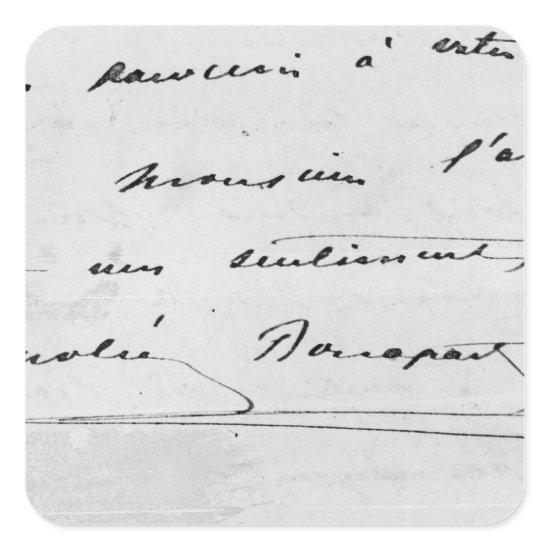 parvenir à votre
Monsieur l'a
mes sentiments
Bonapart